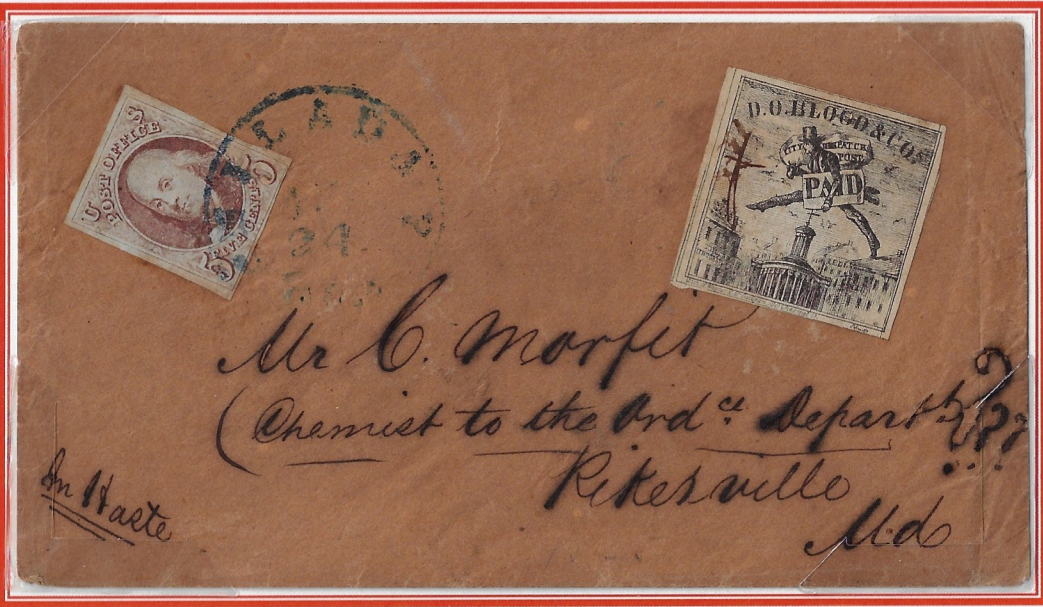 POST OFFICE
5 5
LADA
24
D.O.BLOOD & CO'S
CITY DESPATCH
POST
PAID
Mr C. Morfit
(Chemist to the Ordce Departt)???
Pikesville
Md
In Haste